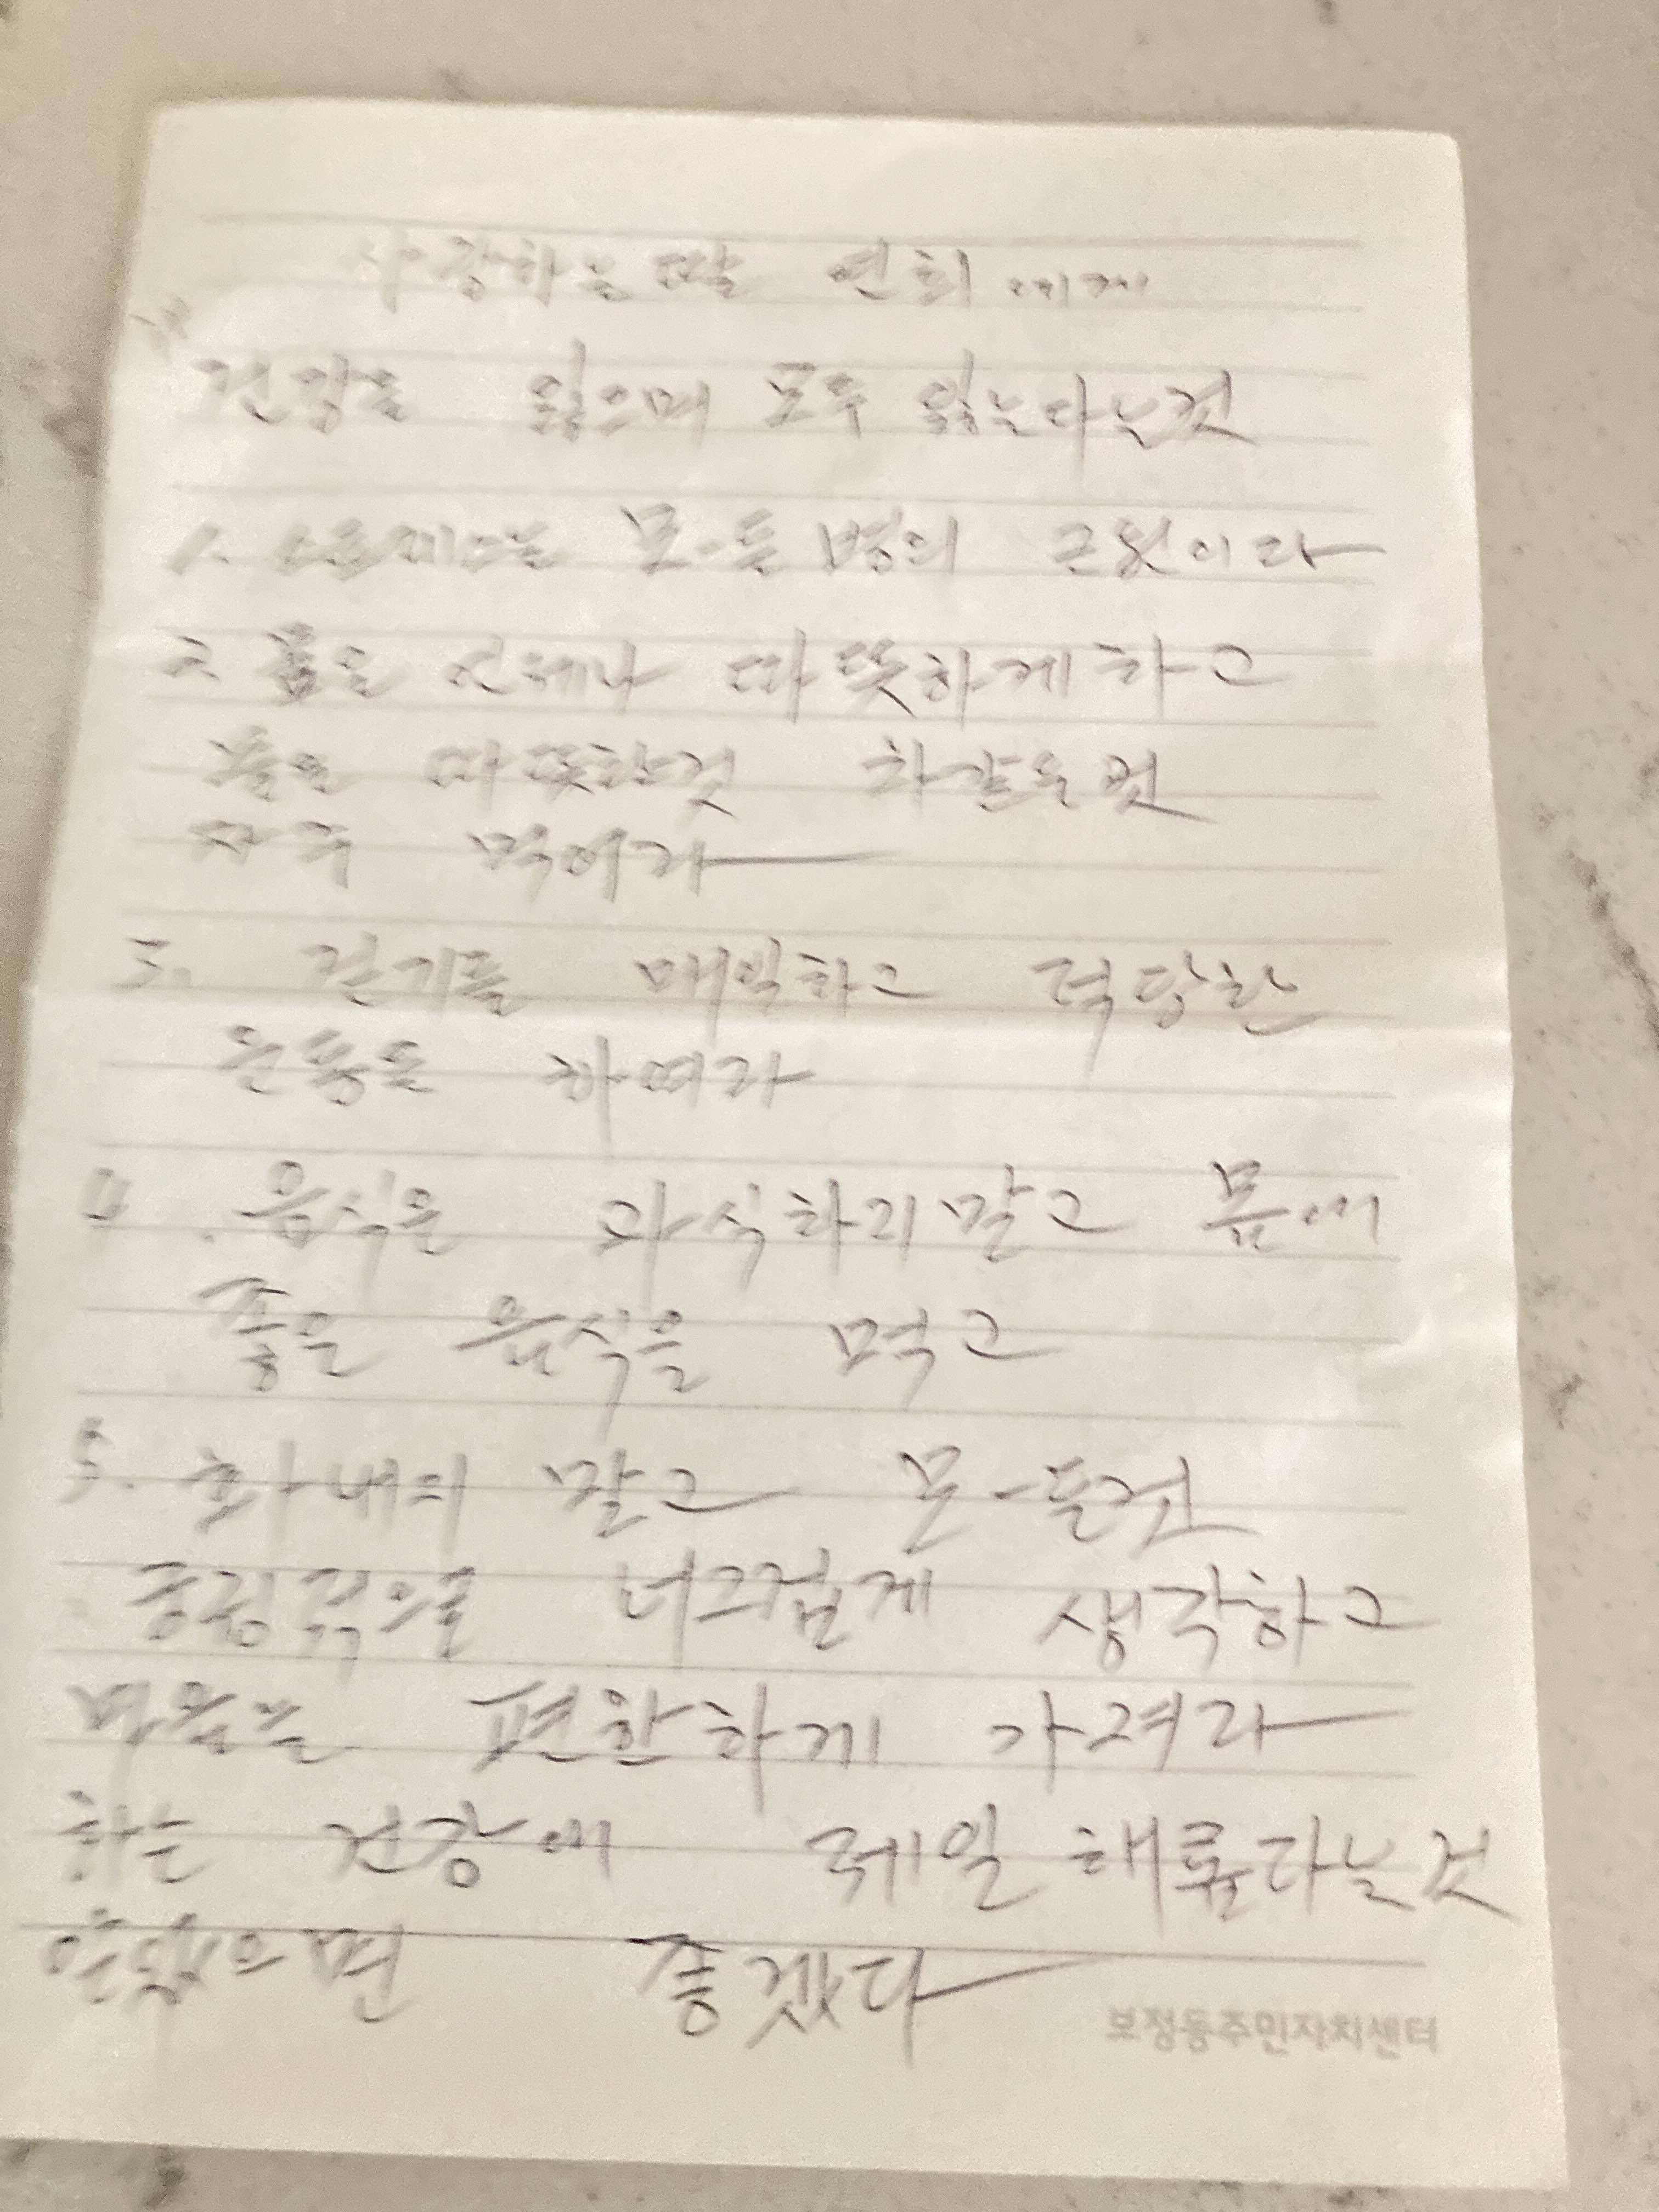 사랑하는 딸 연희에게
건강을 잃으며 모두 잃는다는것
1. 스트레스는 모-든 병의 근원이라
2. 몸을 언제나 따뜻하게 하고
물은 따뜻한것
자주 먹어라
3. 걷기를 매일하고 적당한
운동을 하여라
4. 음식은 과식하지말고 몸에
좋은 음식을 먹고
5. 화내지 말고 모-든것
긍정적으로 너그럽게 생각하고
마음을 편안하게 가져라
화는 건강에 제일 해롭다는것
좋겠다
보정동주민자치센터